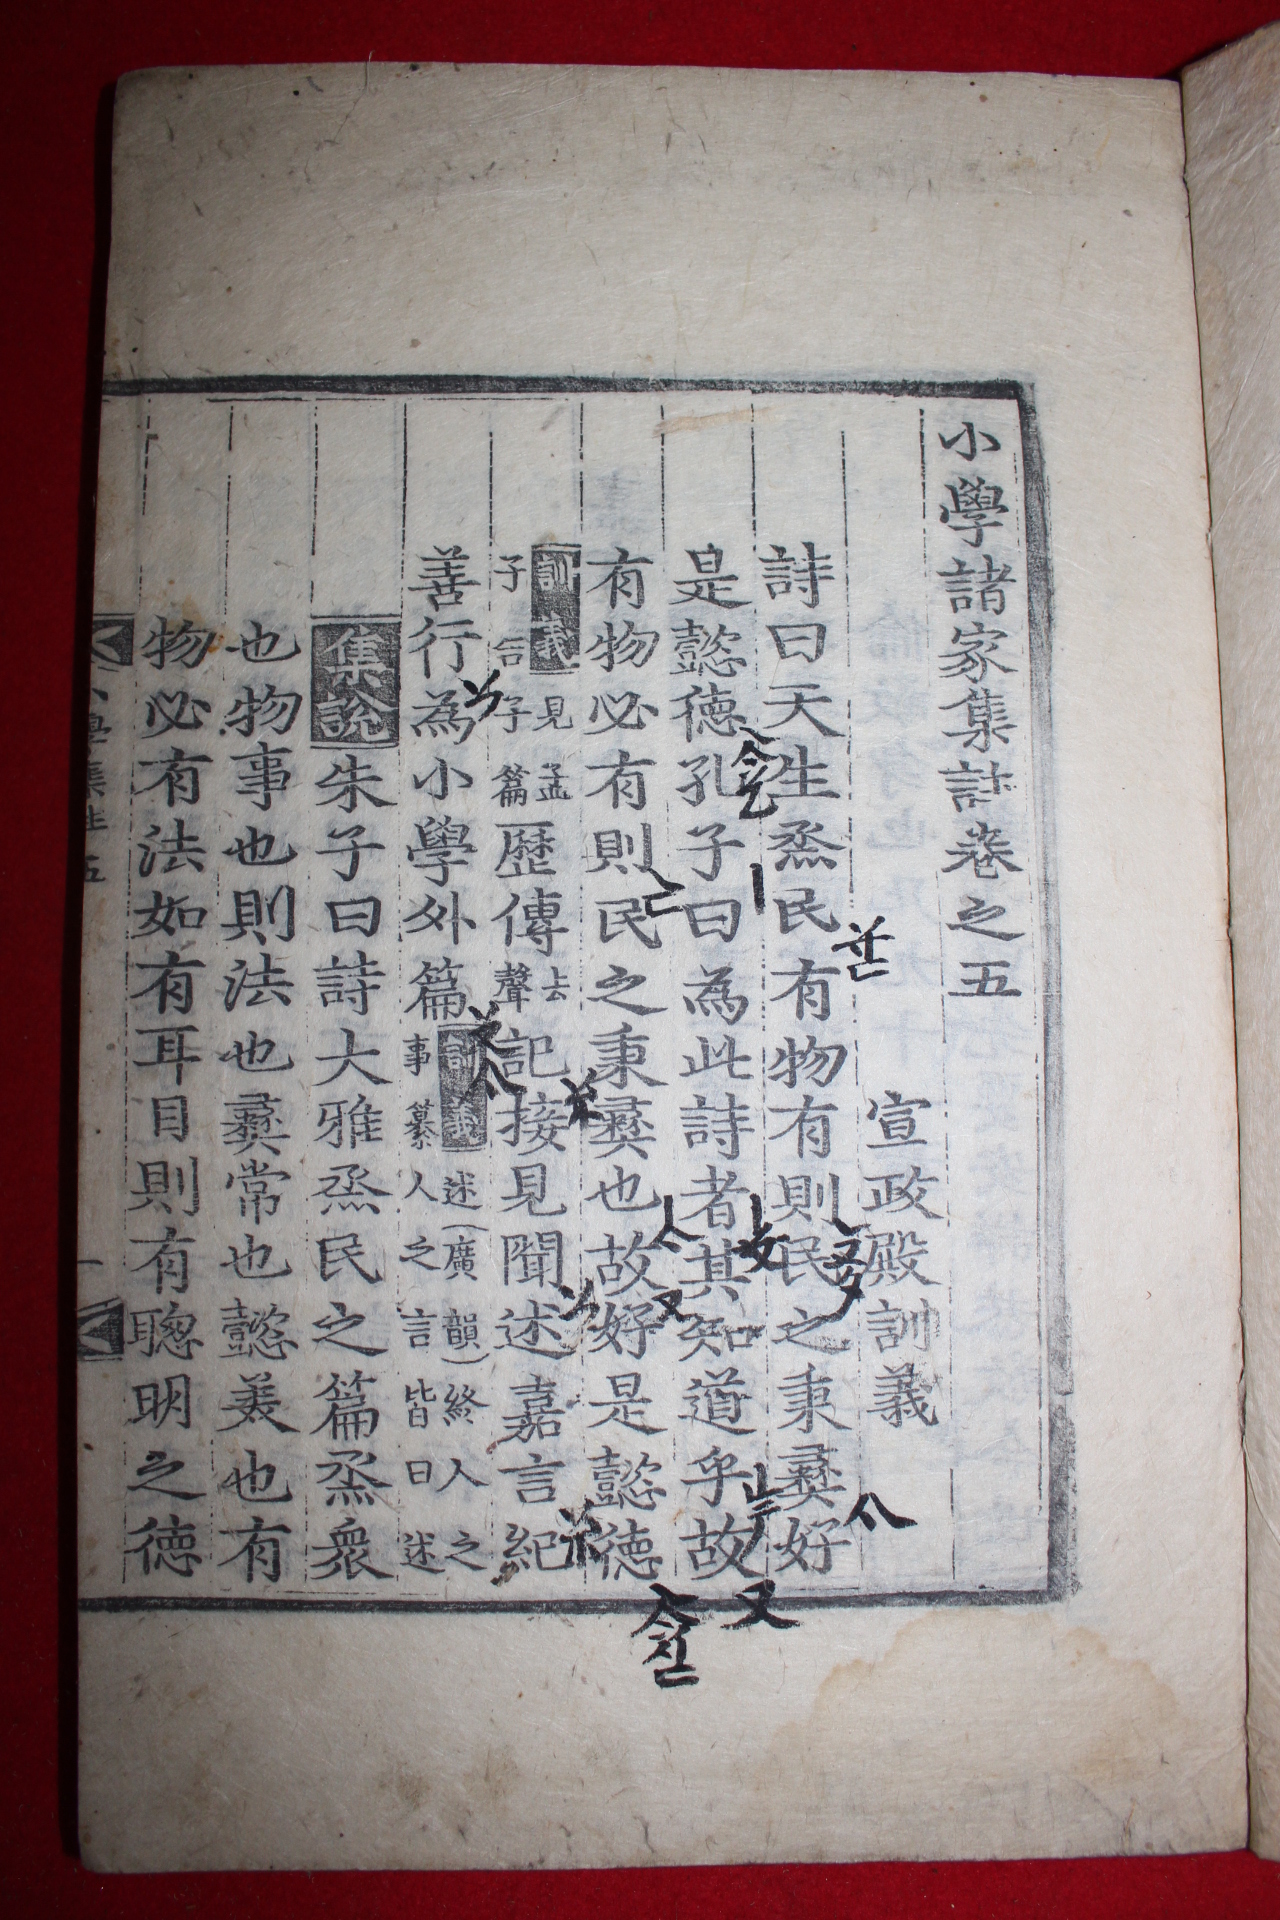 小學諸家集註卷之五
宣政殿訓義
詩曰天生烝民有物有則民之秉彝好
是懿德孔子曰為此詩者其知道乎故
有物必有則民之秉彝也故好是懿德
訓義見孟子告子篇歷傳去聲記接見聞述嘉言紀
善行為小學外篇訓義述(廣韻)終人之事纂人之言皆曰述
集說朱子曰詩大雅烝民之篇烝衆
也物事也則法也彝常也懿美也有
物必有法如有耳目則有聰明之德
小學集註五
一